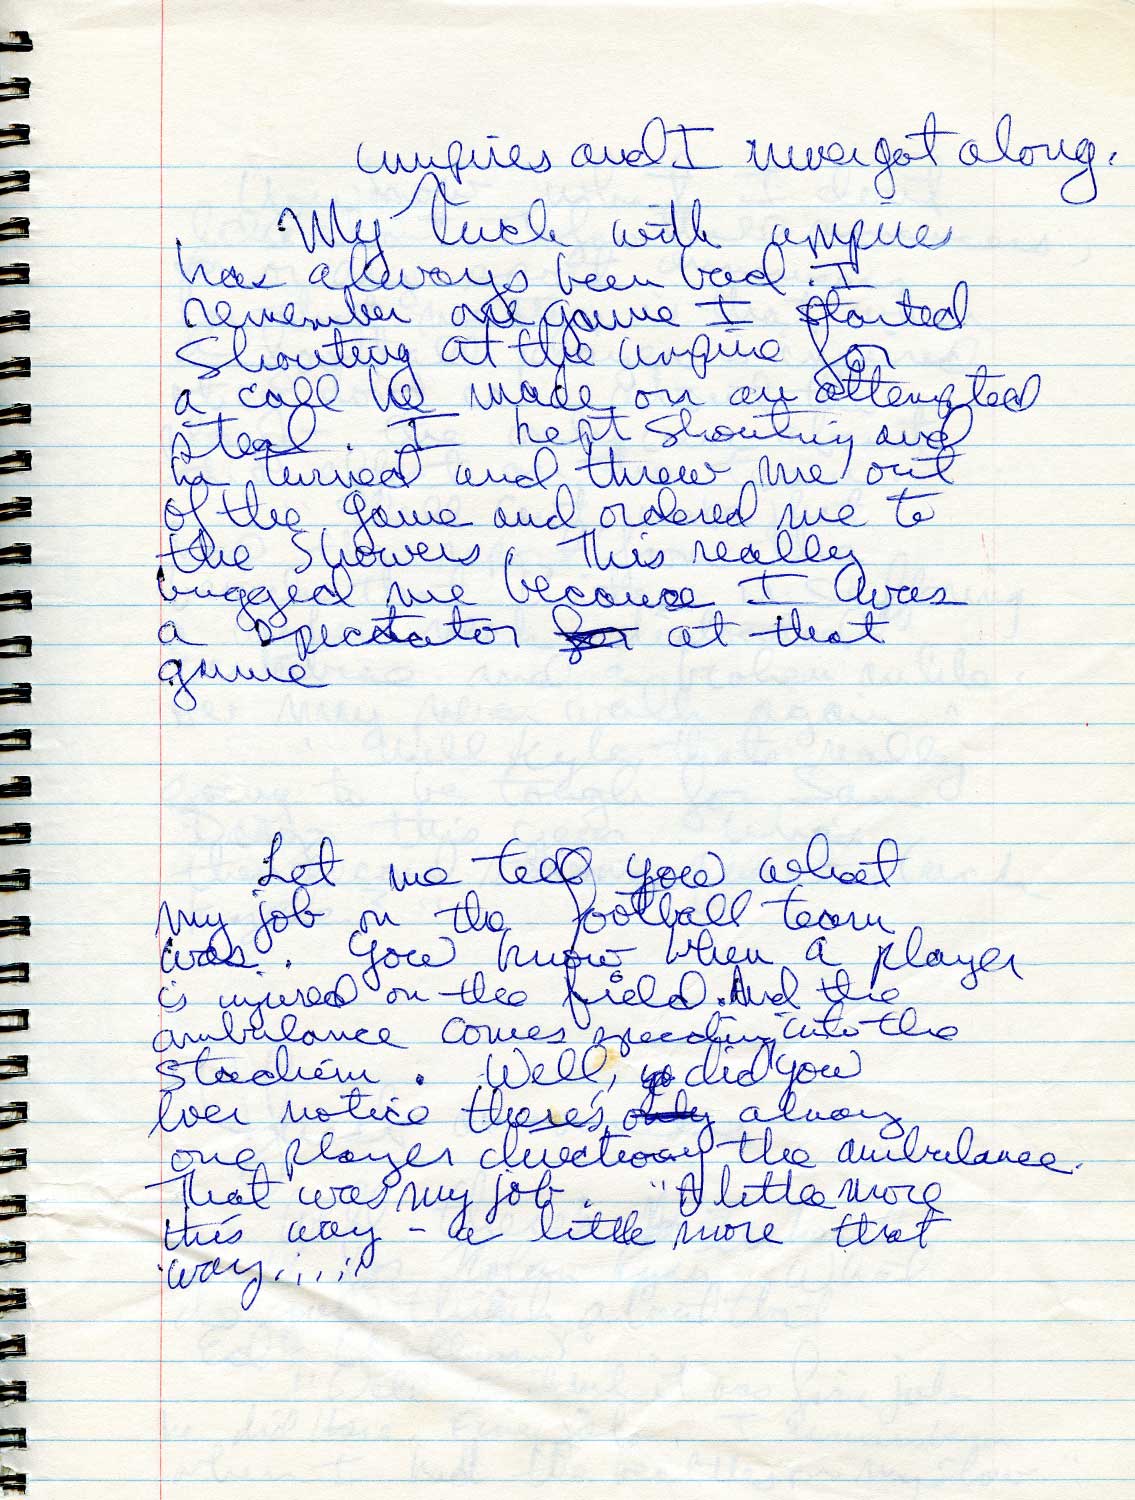 umpires and I never got along.
My luck with umpires
has always been bad. I
remember one game I started
shouting at the umpire for
a call he made on an attempted
steal. I kept shouting and
he turned and threw me out
of the game and ordered me to
the showers. This really
bugged me because I was
a spectator for at that
game
Let me tell you what
my job on the football team
was. You know when a player
is injured on the field. And the
ambulance comes speeding into the
stadium. Well, did you
ever notice there's only always
one player directing the ambulance.
That was my job. "A little more
this way - a little more that
way.....